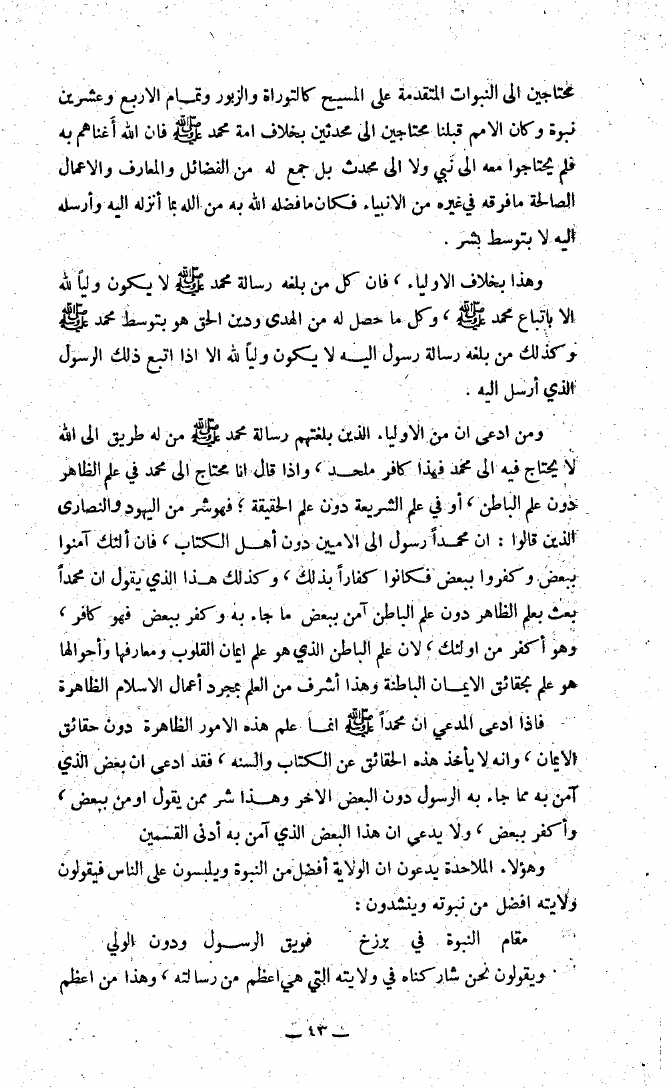 محتاجين الى النبوات المتقدمة على المسيح كالتوراة والزبور وتمام الاربع وعشرين
نبوة وكان الامم قبلنا محتاجين الى محدثين بخلاف امة محمد ﷺ فان الله أغناهم به
فلم يحتاجوا معه الى نبي ولا الى محدث بل جمع له من الفضائل والمعارف والاعمال
الصالحة مافرقه في غيره من الانبياء فكان مافضله الله به من الله بما أنزله اليه وأرسله
اليه لا بتوسط بشر .
وهذا بخلاف الاولياء ، فان كل من بلغه رسالة محمد ﷺ لا يكون ولياً لله
الا باتباع محمد ﷺ ، وكل ما حصل له من الهدى ودين الحق هو بتوسط محمد ﷺ
وكذلك من بلغه رسالة رسول اليه لا يكون ولياً لله الا اذا اتبع ذلك الرسول
الذي أرسل اليه .
ومن ادعى ان من الاولياء الذين بلغتهم رسالة محمد ﷺ من له طريق الى الله
لا يحتاج فيه الى محمد فهذا كافر ملحد ، واذا قال انا محتاج الى محمد في علم الظاهر
دون علم الباطن ، أو في علم الشريعة دون علم الحقيقة ؛ فهو شر من اليهود والنصارى
الذين قالوا : ان محمداً رسول الى الاميين دون أهل الكتاب ، فان ألئك آمنوا
ببعض وكفروا ببعض فكانوا كفاراً بذلك ، وكذلك هذا الذي يقول ان محمداً
بعث بعلم الظاهر دون علم الباطن آمن ببعض ما جاء به وكفر ببعض فهو كافر ،
وهو أكفر من اولئك ، لان علم الباطن الذي هو علم ايمان القلوب ومعارفها وأحوالها
هو علم بحقائق الايمان الباطنة وهذا أشرف من العلم بمجرد أعمال الاسلام الظاهرة
فاذا ادعى المدعي ان محمداً ﷺ انما علم هذه الامور الظاهرة دون حقائق
الايمان ، وانه لا يأخذ هذه الحقائق عن الكتاب والسنه ، فقد ادعى ان بعض الذي
آمن به مما جاء به الرسول دون البعض الاخر وهذا شر ممن يقول اومن ببعض ،
وأكفر ببعض ، ولا يدعي ان هذا البعض الذي آمن به أدنى القسمين
وهؤلاء الملاحدة يدعون ان الولاية أفضل من النبوة ويلبسون على الناس فيقولون
ولايته افضل من نبوته وينشدون :
مقام النبوة في برزخ فويق الرسول ودون الولي
ويقولون نحن شاركناه في ولايته التي هي اعظم من رسالته ، وهذا من اعظم
— ٤٣ —